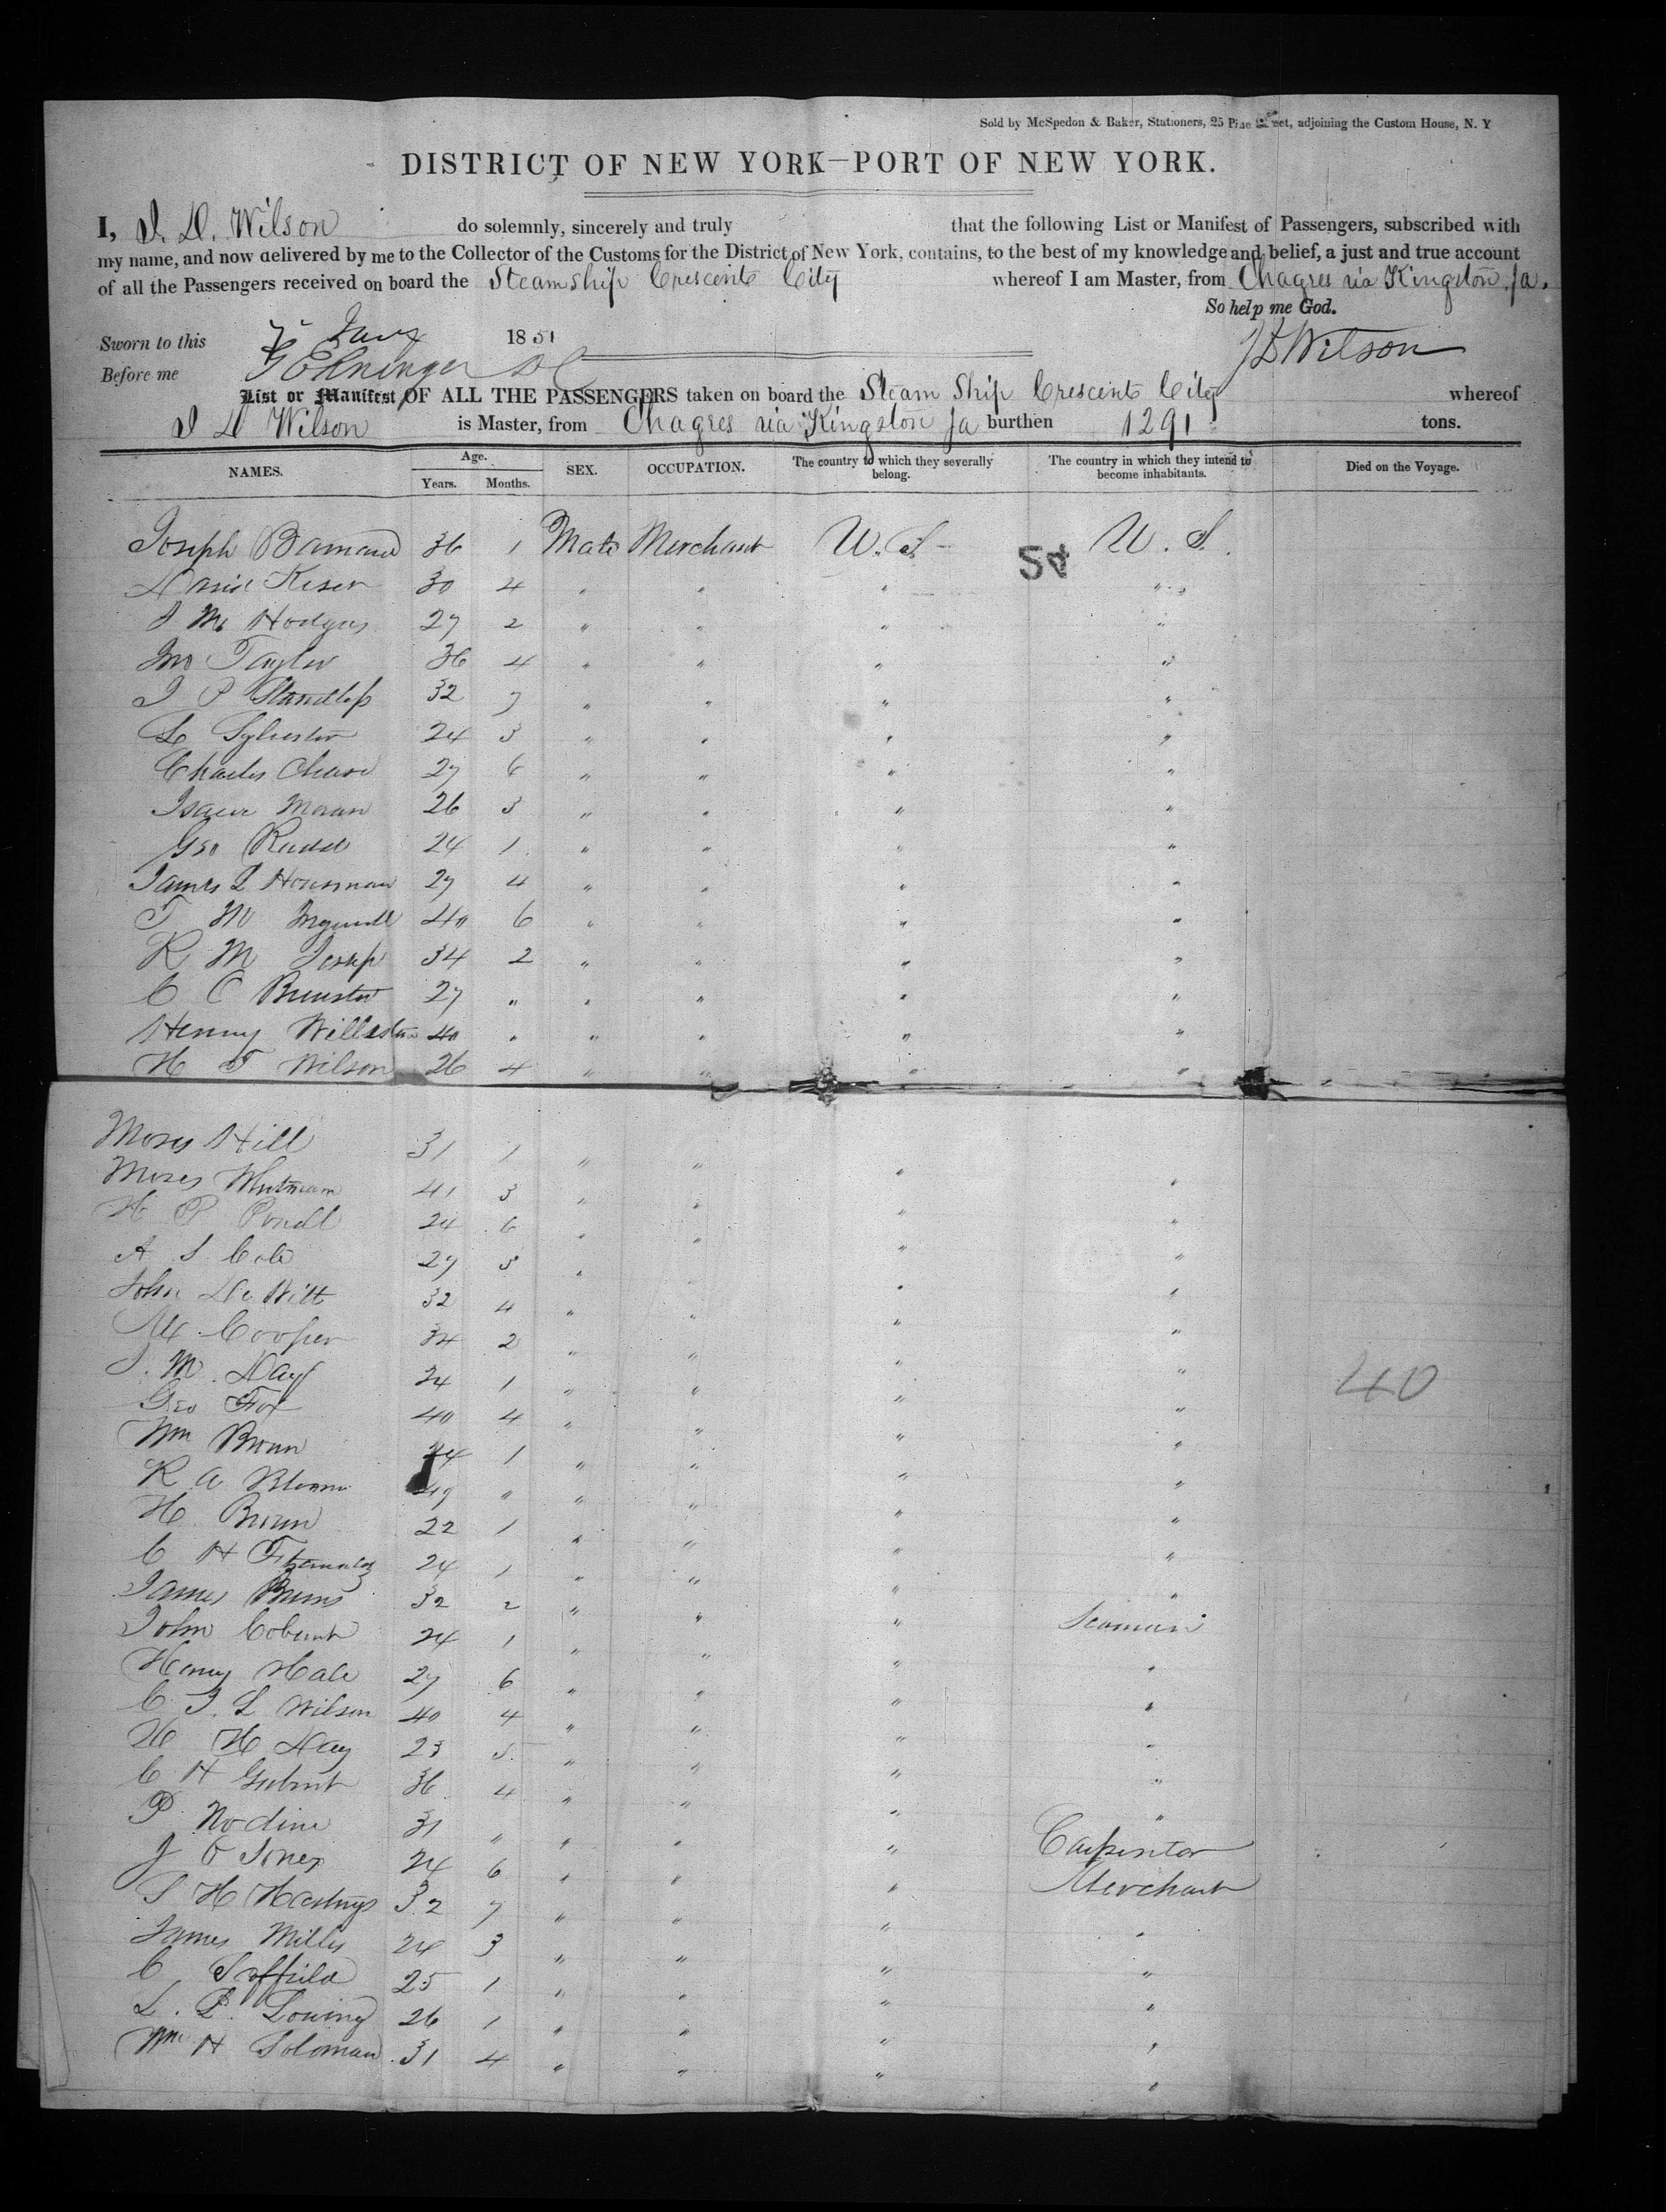 Sold by McSpedon & Baker, Stationers, 25 Pine Street, adjoining the Custom House, N. Y
DISTRICT OF NEW YORK—PORT OF NEW YORK.
I, J. D. Wilson do solemnly, sincerely and truly that the following List or Manifest of Passengers, subscribed with
my name, and now delivered by me to the Collector of the Customs for the District of New York, contains, to the best of my knowledge and belief, a just and true account
of all the Passengers received on board the Steamship Crescent City whereof I am Master, from Chagres via Kingston Ja.
So help me God.
Sworn to this 7 Jany 1851 J D Wilson
Before me
List or Manifest OF ALL THE PASSENGERS taken on board the Steam Ship Crescent City whereof
J D Wilson is Master, from Chagres via Kingston Ja burthen 1291 tons.
NAMES. Age. Years. Months. SEX. OCCUPATION. The country to which they severally belong. The country in which they intend to become inhabitants. Died on the Voyage.
Joseph Barnard 36 1 Male Merchant U. S. 54 U. S.
David Keser 30 4 " " " "
J M Hodges 27 2 " " " "
Jno Taylor 36 4 " " " "
J P 32 7 " " " "
L Sylvester 24 3 " " " "
Charles Chase 27 6 " " " "
Isaac Moran 26 3 " " " "
Geo Rudd 24 1 " " " "
James L Housman 27 4 " " " "
T M 40 6 " " " "
R M Jesup 34 2 " " " "
C C Brewster 27 " " " " "
Henry 40 " " " " "
H T Wilson 26 4 " " " "
Moses Hill 31 1 " " " "
Moses Whitman 41 3 " " " "
H P 24 6 " " " "
A S Cole 27 5 " " " "
John De Witt 32 4 " " " "
Cooper 34 2 " " " "
J. M. Day 24 1 " " " "
40
Geo Fox 40 4 " " " "
Wm Brown 24 1 " " " "
R A " " " " "
H Brown 22 1 " " " "
C H 24 1 " " " "
James Burns 32 2 " " " "
John Coburn 24 1 " " " Seaman
Henry Hale 27 6 " " " "
C J. L Wilson 40 4 " " " "
H H Day 23 5 " " " "
C H 36 4 " " " "
P Nodine 31 " " " " "
J O Jones 24 6 " " " Carpenter
S H Hastings 32 7 " " " Merchant
James Mills 24 3 " " " "
C 25 1 " " " "
L. P. Loving 26 1 " " " "
Wm H Soloman 31 4 " " " "